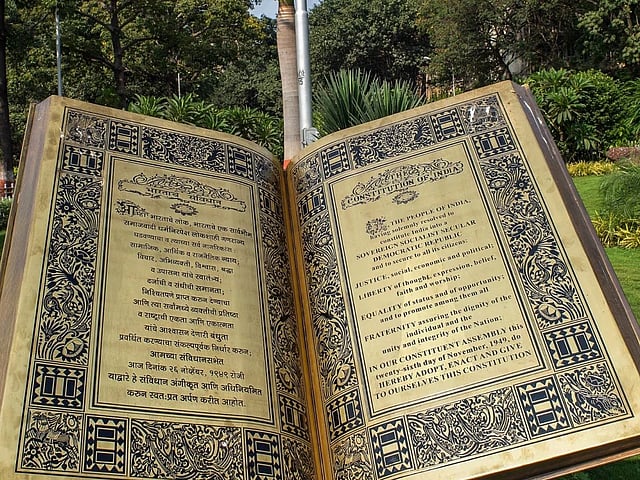 भारताचे संविधान
आम्ही भारताचे लोक, भारताचे एक सार्वभौम
समाजवादी धर्मनिरपेक्ष लोकशाही गणराज्य
घडवण्याचा व त्याच्या सर्व नागरिकांस
सामाजिक, आर्थिक व राजनैतिक न्याय;
विचार, अभिव्यक्ती, विश्वास, श्रद्धा
व उपासना यांचे स्वातंत्र्य;
दर्जाची व संधीची समानता;
निश्चितपणे प्राप्त करून देण्याचा
आणि त्या सर्वांमध्ये व्यक्तीची प्रतिष्ठा
व राष्ट्राची एकता आणि एकात्मता
यांचे आश्वासन देणारी बंधुता
प्रवर्धित करण्याचा संकल्पपूर्वक निर्धार करून;
आमच्या संविधानसभेत
आज दिनांक २६ नोव्हेंबर, १९४९ रोजी
याद्वारे हे संविधान अंगीकृत आणि अधिनियमित
करून स्वतःप्रत अर्पण करीत आहोत.
CONSTITUTION OF INDIA
WE, THE PEOPLE OF INDIA,
having solemnly resolved to
constitute India into a
SOVEREIGN SOCIALIST SECULAR
DEMOCRATIC REPUBLIC
and to secure to all its citizens:
JUSTICE, social, economic and political;
LIBERTY of thought, expression, belief,
faith and worship;
EQUALITY of status and of opportunity;
and to promote among them all
FRATERNITY assuring the dignity of the
individual and the
unity and integrity of the Nation;
IN OUR CONSTITUENT ASSEMBLY this
twenty-sixth day of November, 1949, do
HEREBY ADOPT, ENACT AND GIVE
TO OURSELVES THIS CONSTITUTION